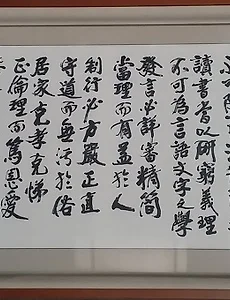 讀書當以研窮義理
不可為言語文字之學
發言必詳審精簡
當理而有益於人
制行必方嚴正直
守道而無污於俗
居家克孝克悌
正倫理而篤恩愛